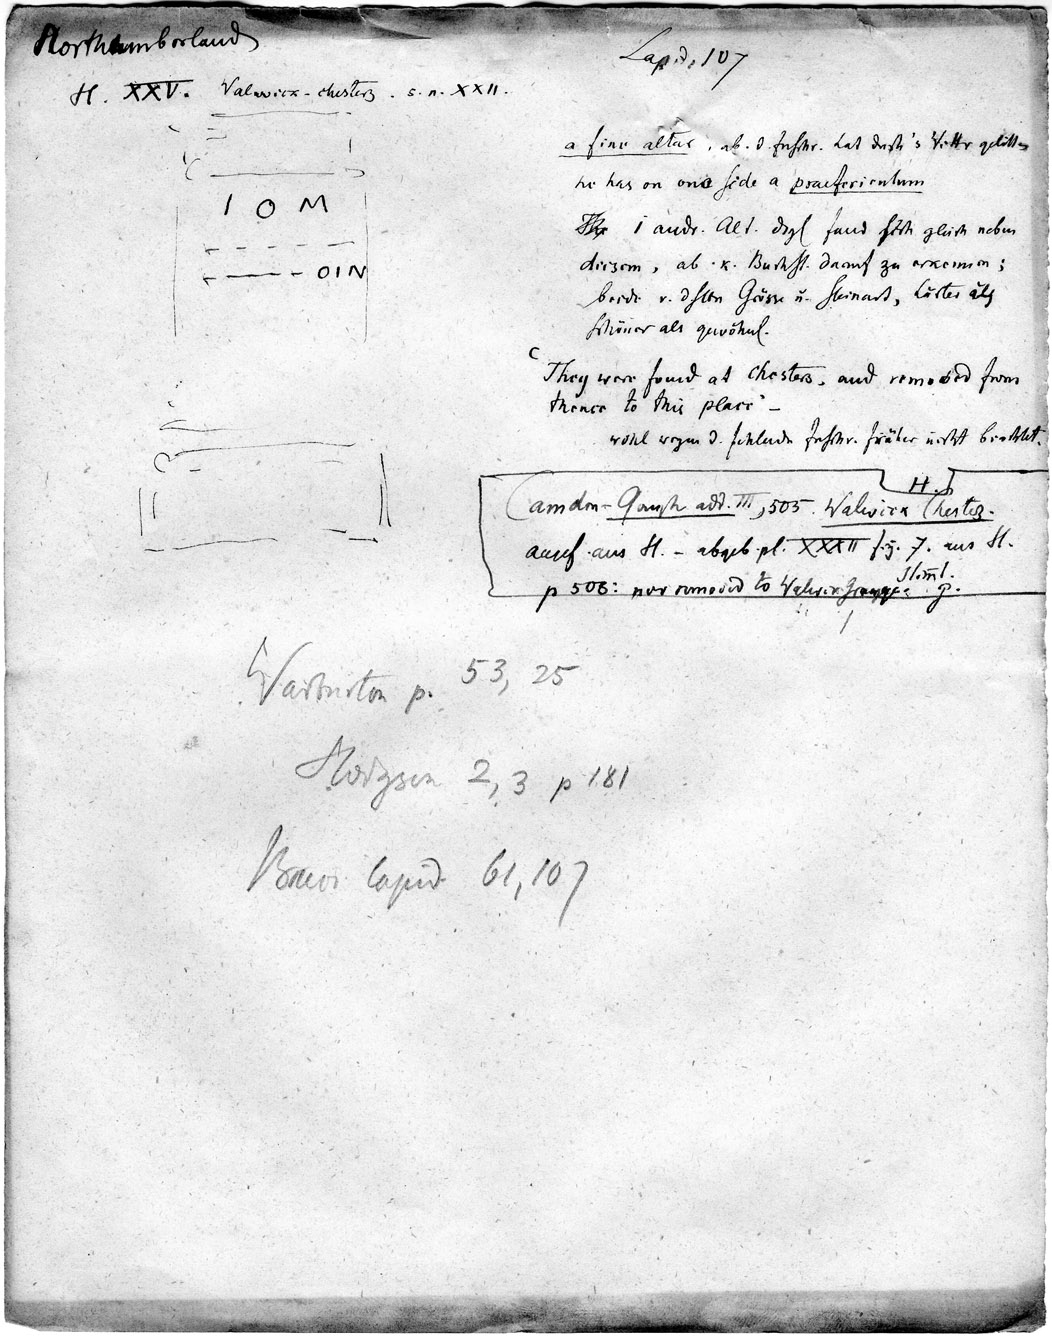 Northumberland
Lapid. 107
H. XXV. Walwick-chesters. s. n. XXII.
a fine altar, ab. d. Inschr. hat durch's Wettr gelitten
he has on one side a praefericulum
I O M
1 andr. Alt. dgl fand sich gleich neben
diesem, ab. k. Buchst. darauf zu erkennen;
OIN
beide v. dslben Grösse u. Steinart,
schöner als gewöhnl.
They were found at Chesters, and removed from
thence to this place" –
wohl wegen d. fehlenden Inschr. früher nicht beachtet.
H.
Camden-Gough add. III, 505. Walwick Chesters.
aus H. – abgeb. pl. XXXII fig. 7. aus H.
p 506: now removed to Walwick Grange
Warburton p. 53, 25
Hodgson 2, 3 p 181
Bruce lapid. 61, 107